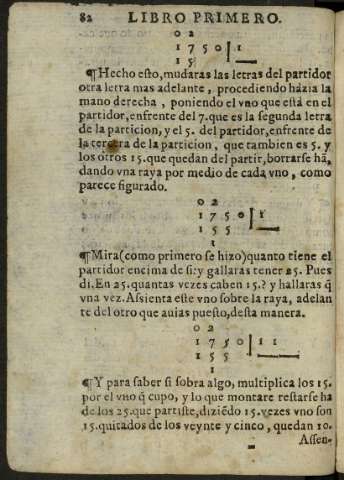 82 LIBRO PRIMERO.
0 2
1 7 5 0 | 1
1 5
¶Hecho esto, mudaras las letras del partidor
otra letra mas adelante, procediendo házia la
mano derecha, poniendo el vno que está en el
partidor, enfrente del 7. que es la segunda letra
de la particion, y el 5. del partidor, enfrente de
la tercera de la particion, que tambien es 5. y
los otros 15. que quedan del partir, borrarse hã,
dando vna raya por medio de cada vno, como
parece figurado.
0 2
1 7 5 0 | 1
1 5 5
1
¶Mira (como primero se hizo) quanto tiene el
partidor encima de si: y gallaras tener 25. Pues
di. En 25. quantas vezes caben 15.? y hallaras q̃
vna vez. Assienta este vno sobre la raya, adelan
te del otro que auias puesto, desta manera.
0 2
1 7 5 0 | 1 1
1 5 5
1
¶Y para saber si sobra algo, multiplica los 15.
por el vno q̃ cupo, y lo que montare restarse ha
de los 25. que partiste, diziẽdo 15. vezes vno son
15. quitados de los veynte y cinco, quedan 10.
Assen-